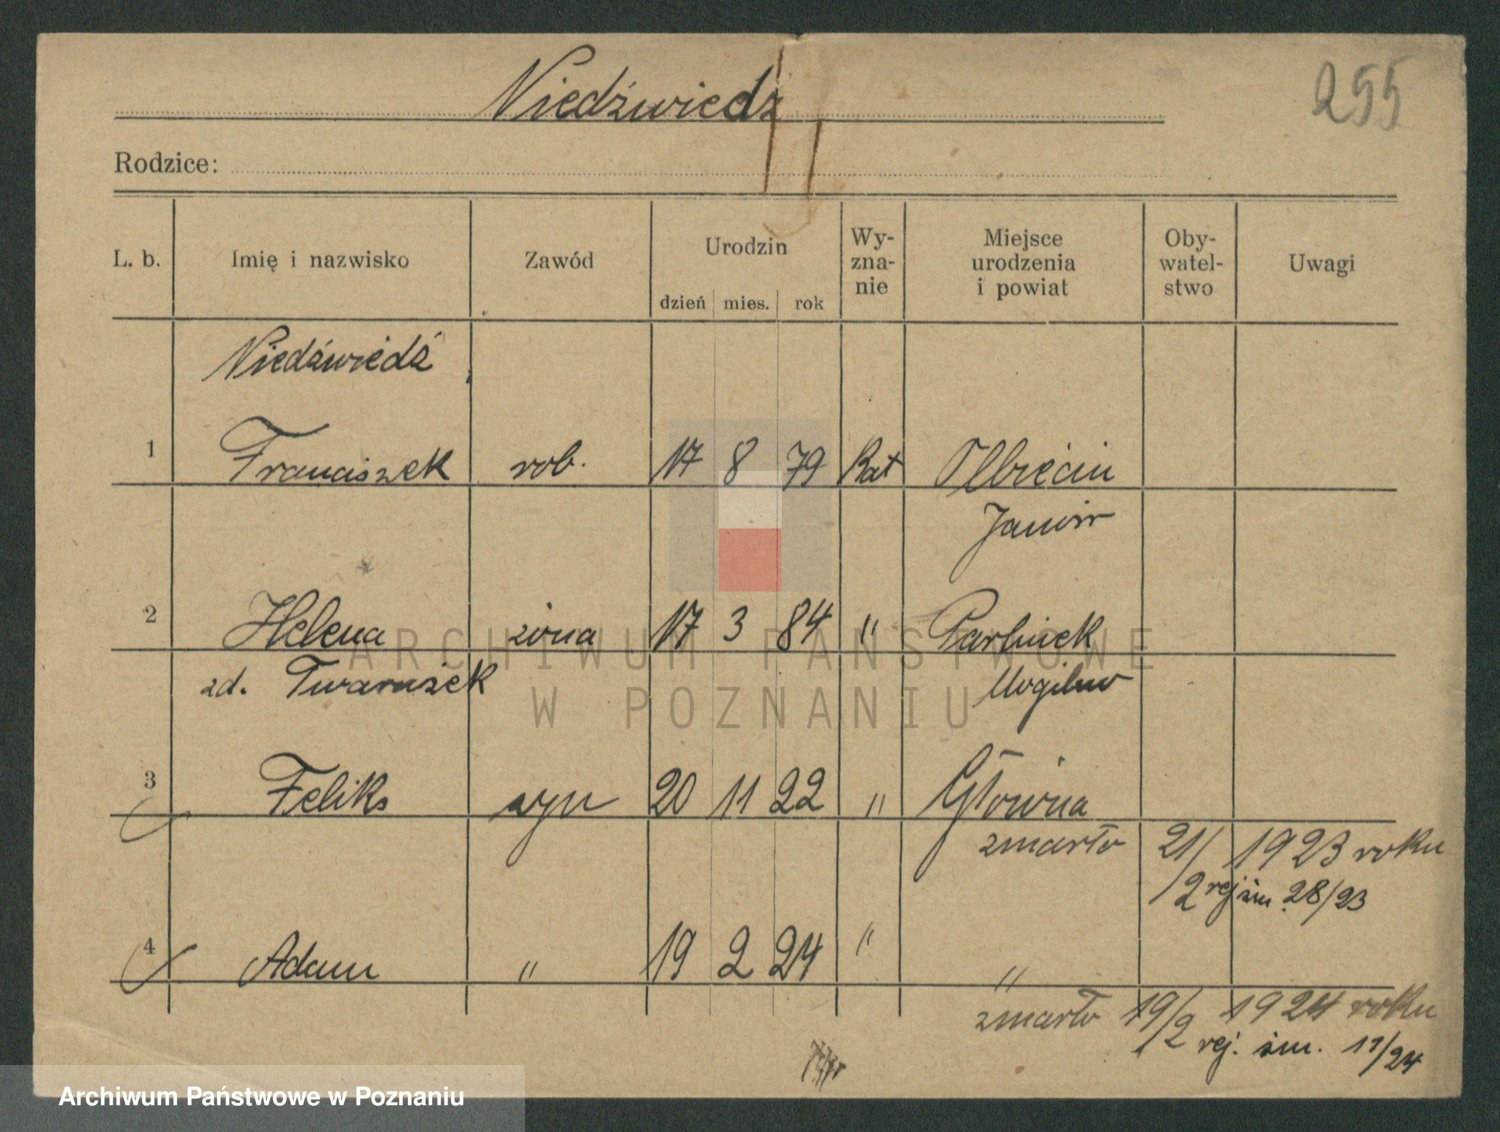 255
Niedźwiedź
Rodzice:
L. b. Imię i nazwisko Zawód Urodzin dzień mies. rok Wy-zna-nie Miejsce urodzenia i powiat Oby-watel-stwo Uwagi
Niedźwiedź
1 Franciszek rob. 17 8 79 Kat Olbrecin
Janów
2 Helena żona 17 3 84 " Parlinek
zd. Twarużek Mogilno
3 Feliks syn 20 11 22 " Główna
zmarło 21/2 1923 roku
rej śm 28/23
4 Adam " 19 2 24 " "
zmarło 19/2 1924 roku
rej. śm. 11/24
ARCHIWUM PAŃSTWOWE
W POZNANIU
Archiwum Państwowe w Poznaniu